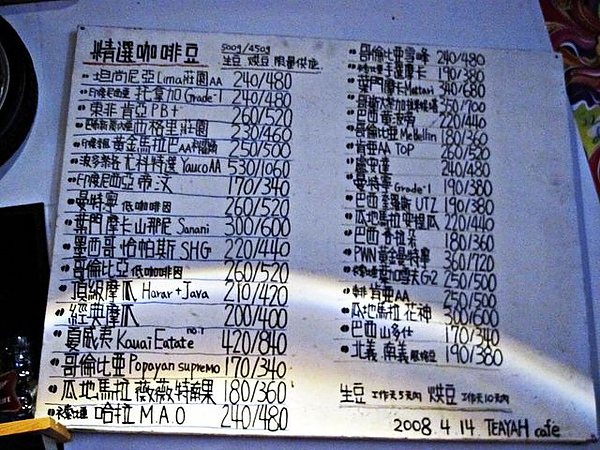 精選咖啡豆 500g/450g
生豆 烘豆 限量供應
坦尚尼亞Lima莊園AA 240/480
印度尼西亞 托拿加Grade-1 240/480
東非 肯亞 PB+ 260/520
西格里莊園 230/460
黃金馬拉巴AA 250/500
波多黎各 尤科特選YaucoAA 530/1060
印度尼西亞 帝汶 170/340
曼特寧 低咖啡因 260/520
葉門摩卡山那尼 Sanani 300/600
墨西哥 恰帕斯 SHG 220/440
哥倫比亞 低咖啡因 260/520
頂級摩爪 Harar+Java 210/420
經典摩爪 200/400
夏威夷 Kauai Eatate no.1 420/840
哥倫比亞 Popayan supremo 170/340
瓜地馬拉 薇薇特南果 180/360
衣索比亞 哈拉 M.A.O 240/480
哥倫比亞雪峰 240/480
摩卡 190/380
葉門摩卡Mattari 340/680
350/700
巴西黃波旁 220/440
哥倫比亞 Medellin 180/360
肯亞AA TOP 260/520
盧安達 240/480
曼特寧 Grade-1 190/380
巴西 UTZ 190/380
瓜地馬拉安提瓜 220/440
巴西 180/360
PWN黃金曼特寧 360/720
G-2 250/500
肯亞AA 250/500
瓜地馬拉 花神 300/600
巴西 山多仕 170/340
北義.南義 190/380
生豆 工作天5天內 烘豆 工作天10天內
2008.4.14. TEAYAH cafe